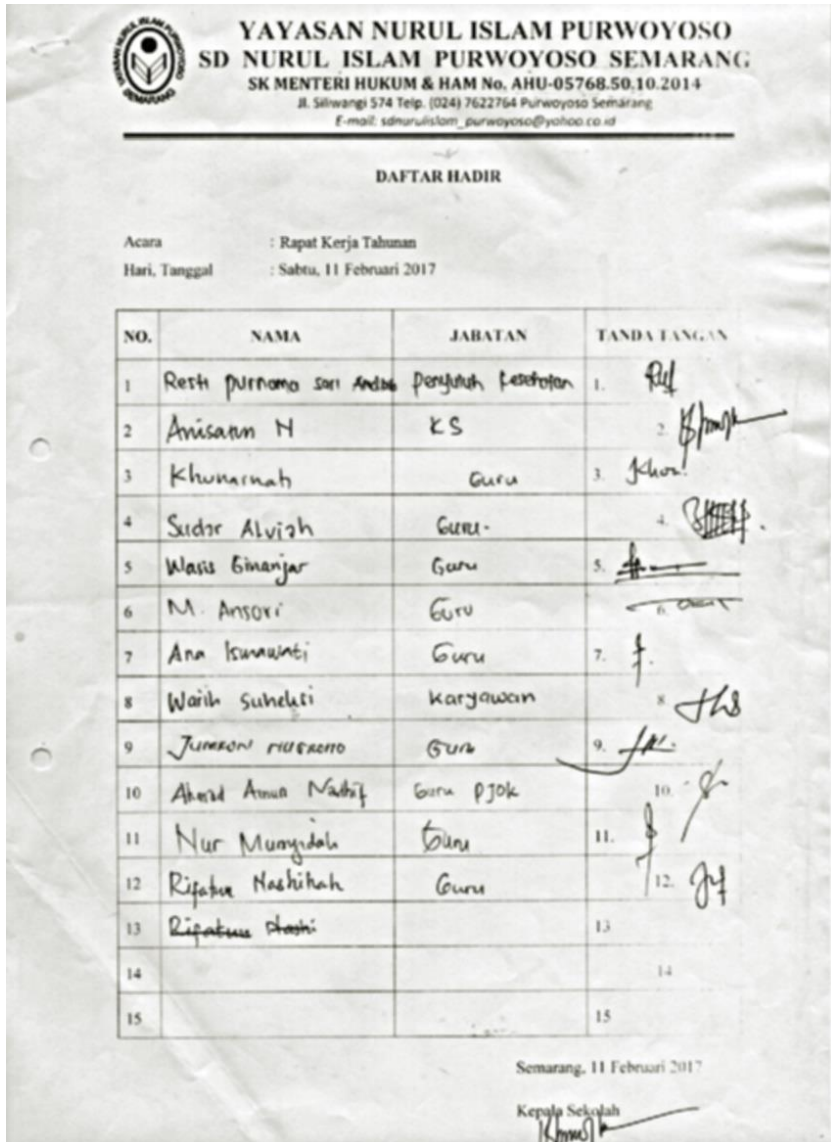 YAYASAN NURUL ISLAM PURWOYOSO
SEMARANG
YAYASAN NURUL ISLAM PURWOYOSO
SD NURUL ISLAM PURWOYOSO SEMARANG
SK MENTERI HUKUM & HAM No. AHU-05768.50.10.2014
Jl. Siliwangi 574 Telp. (024) 7622764 Purwoyoso Semarang
E-mail: sdnurulislam_purwoyoso@yahoo.co.id
DAFTAR HADIR
Acara : Rapat Kerja Tahunan
Hari, Tanggal : Sabtu, 11 Februari 2017
NO. NAMA JABATAN TANDA TANGAN
1 Resti purnama sari penyuluh kesehatan 1.
2 Anisatun N KS 2.
3 Guru 3. Khor
4 Sudar Alviah Guru. 4.
5 Wasis Ginanjar Guru 5.
6 M. Ansori Guru 6.
7 Ana Ismawati Guru 7.
8 Warih Suhelsi Karyawan 8.
9 Guru 9.
10 Ahmad Amun Nashif Guru PJOK 10.
11 Nur Mungidah Guru 11.
12 Rifatun Nashihah Guru 12.
13 Rifatun Nashi 13
14 14
15 15
Semarang, 11 Februari 2017
Kepala Sekolah